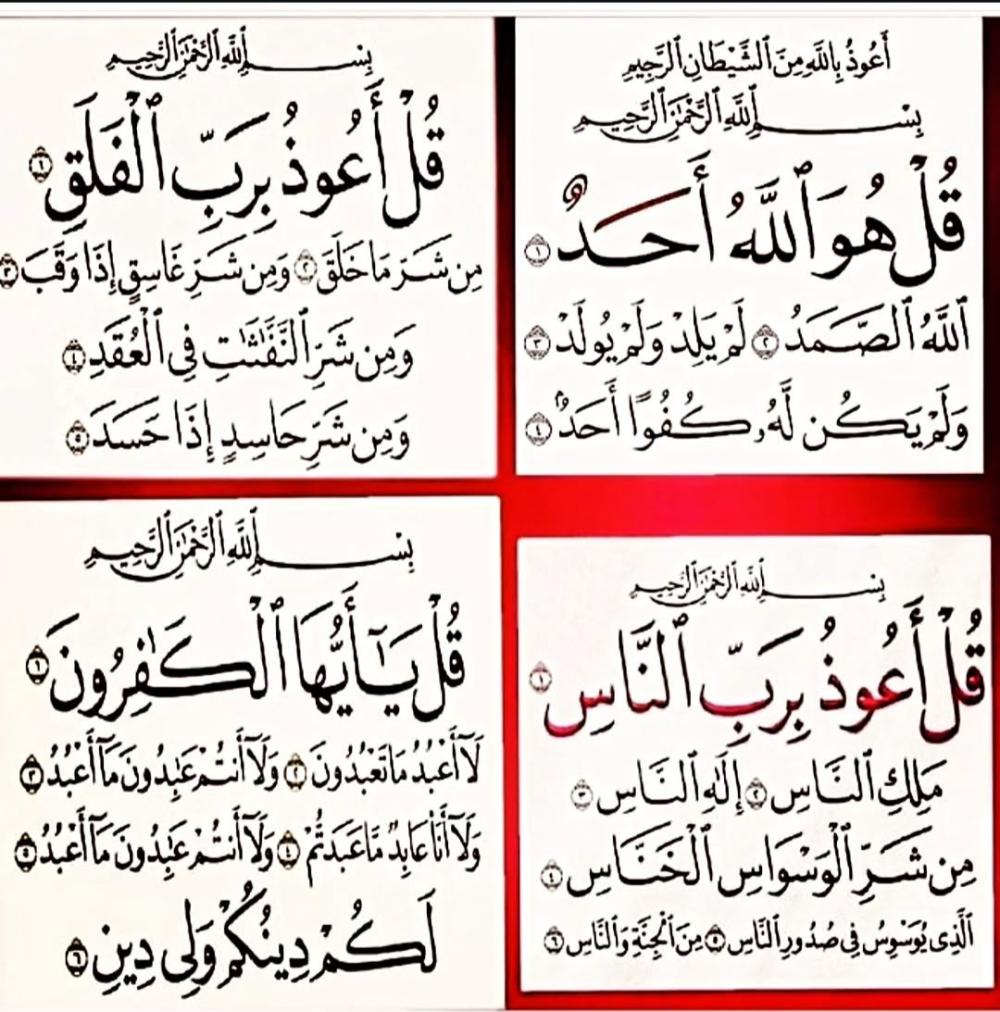 أَعُوذُ بِاللَّهِ مِنَ ٱلشَّيْطَانِ ٱلرَّجِيمِ
بِسْمِ ٱللَّهِ ٱلرَّحْمَٰنِ ٱلرَّحِيمِ
قُلْ هُوَ ٱللَّهُ أَحَدٌ ١
ٱللَّهُ ٱلصَّمَدُ ٢ لَمْ يَلِدْ وَلَمْ يُولَدْ ٣
وَلَمْ يَكُن لَّهُۥ كُفُوًا أَحَدٌۢ ٤
بِسْمِ ٱللَّهِ ٱلرَّحْمَٰنِ ٱلرَّحِيمِ
قُلْ أَعُوذُ بِرَبِّ ٱلْفَلَقِ ١
مِن شَرِّ مَا خَلَقَ ٢ وَمِن شَرِّ غَاسِقٍ إِذَا وَقَبَ ٣
وَمِن شَرِّ ٱلنَّفَّٰثَٰتِ فِى ٱلْعُقَدِ ٤
وَمِن شَرِّ حَاسِدٍ إِذَا حَسَدَ ٥
بِسْمِ ٱللَّهِ ٱلرَّحْمَٰنِ ٱلرَّحِيمِ
قُلْ أَعُوذُ بِرَبِّ ٱلنَّاسِ ١
مَلِكِ ٱلنَّاسِ ٢ إِلَٰهِ ٱلنَّاسِ ٣
مِن شَرِّ ٱلْوَسْوَاسِ ٱلْخَنَّاسِ ٤
ٱلَّذِى يُوَسْوِسُ فِى صُدُورِ ٱلنَّاسِ ٥ مِنَ ٱلْجِنَّةِ وَٱلنَّاسِ ٦
بِسْمِ ٱللَّهِ ٱلرَّحْمَٰنِ ٱلرَّحِيمِ
قُلْ يَٰٓأَيُّهَا ٱلْكَٰفِرُونَ ١
لَآ أَعْبُدُ مَا تَعْبُدُونَ ٢ وَلَآ أَنتُمْ عَٰبِدُونَ مَآ أَعْبُدُ ٣
وَلَآ أَنَا۠ عَابِدٌ مَّا عَبَدتُّمْ ٤ وَلَآ أَنتُمْ عَٰبِدُونَ مَآ أَعْبُدُ ٥
لَكُمْ دِينُكُمْ وَلِىَ دِينِ ٦